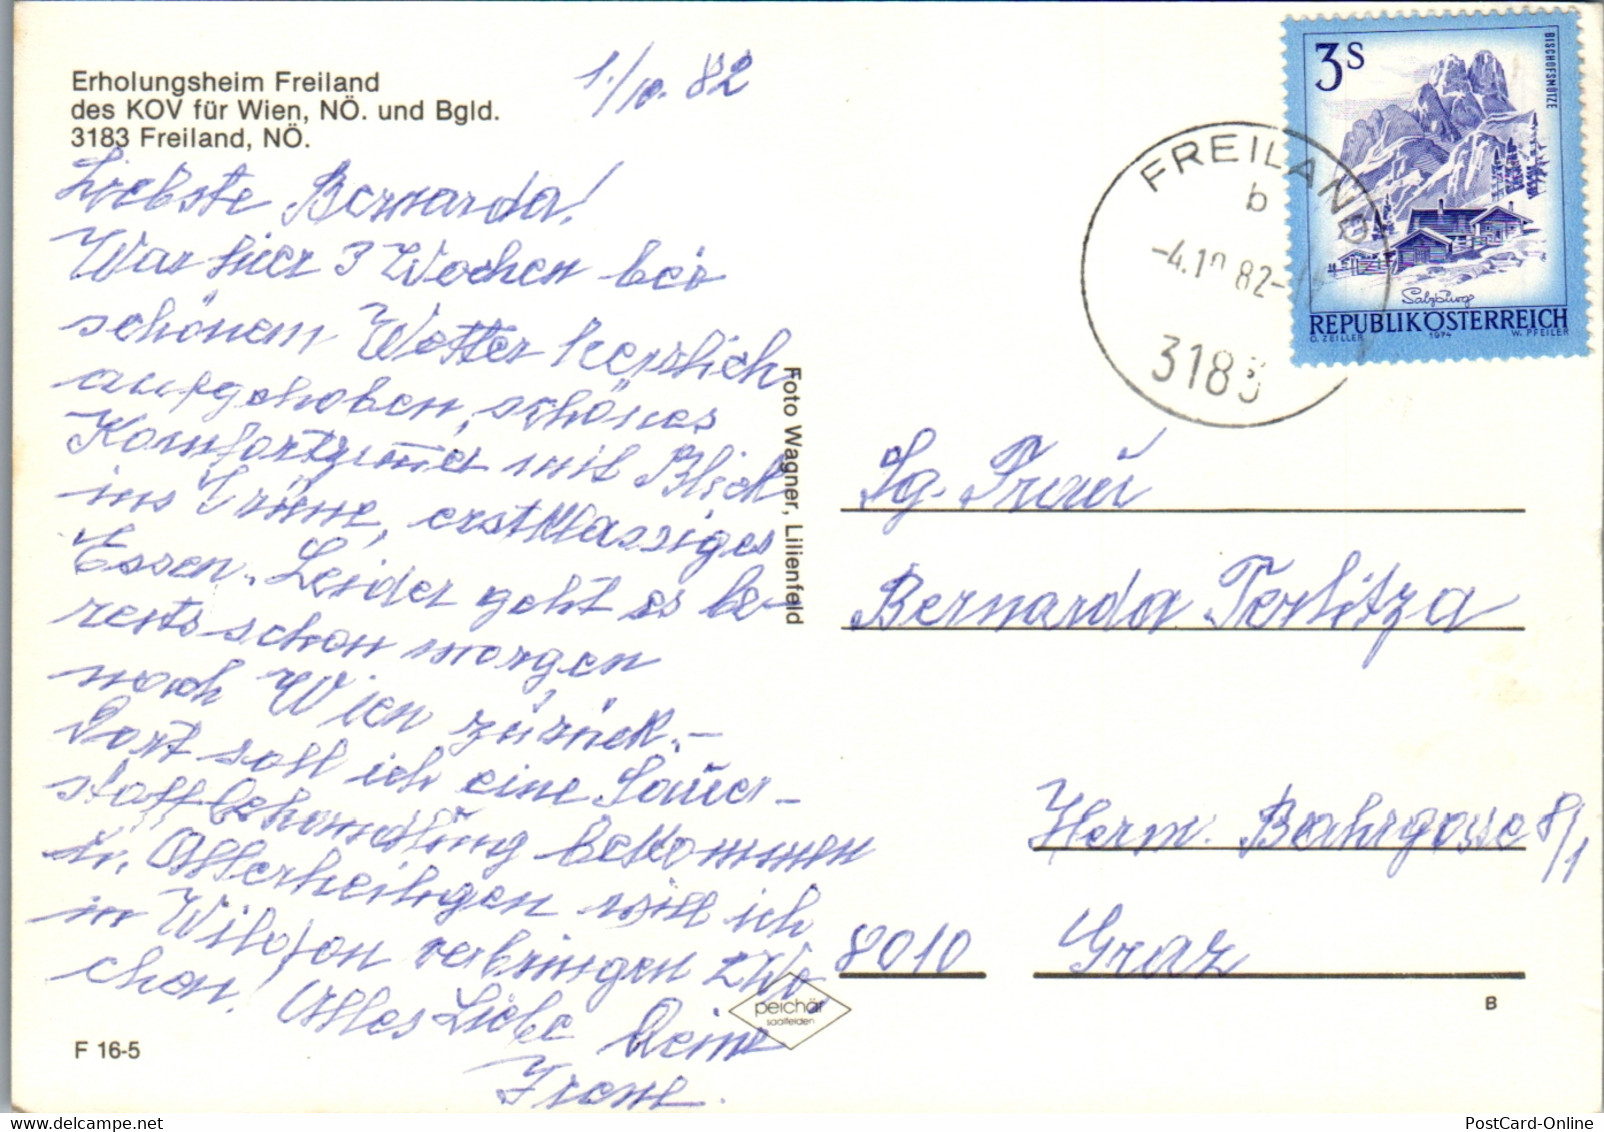 Erholungsheim Freiland
des KOV für Wien, NÖ. und Bgld.
3183 Freiland, NÖ.
1./10. 82
Liebste Bernarda!
War hier 3 Wochen bei
schönem Wetter herrlich
aufgehoben, schönes
Komfortzimmer mit Blick
ins Grüne, erstklassiges
Essen. Leider geht es be-
reits schon morgen
nach Wien zurück.-
Dort soll ich eine Sauer-
stoffbehandlung bekommen
u. Allerheiligen will ich
in Wildon verbringen 2 Wo
chen! Alles Liebe Deine
Irene.
F 16-5
Foto Wagner, Lilienfeld
peichär
saalfelden
FREILAND
b
-4.10.82-
3183
3S
BISCHOFSMÜTZE
Salzburg
REPUBLIK ÖSTERREICH
O. ZEILLER 1974 W. PFEILER
Sg. Frau
Bernarda Terlitza
Herm. Bahrgasse 8/1
8010 Graz
B
PostCard-Online